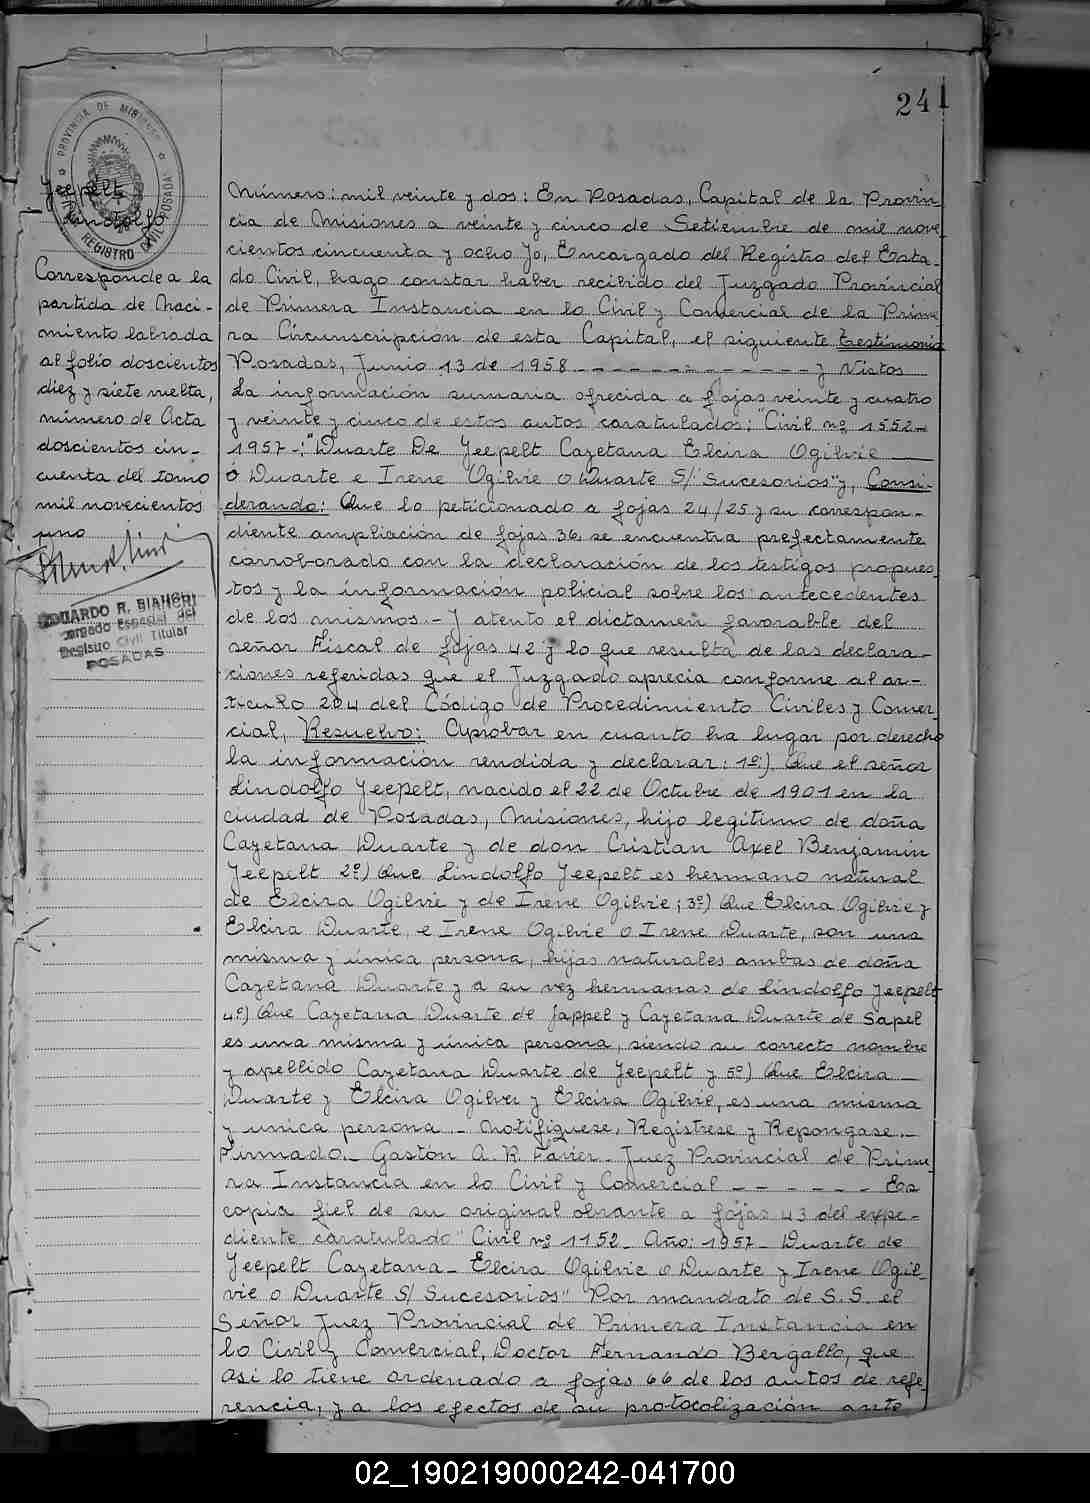 241
PROVINCIA DE MISIONES
REGISTRO CIVIL POSADAS
Yeepelt
Lindolfo
Corresponde a la
partida de Naci-
miento labrada
al folio doscientos
diez y siete vuelta,
número de Acta
doscientos cin-
cuenta del tomo
mil novecientos
uno
EDUARDO R. BIANCHI
Encargado Especial del
Registro Civil Titular
POSADAS
Número: mil veinte y dos: En Posadas, Capital de la Provin-
cia de Misiones a veinte y cinco de Setiembre de mil nove-
cientos cincuenta y ocho Yo, Encargado del Registro del Esta-
do Civil, hago constar haber recibido del Juzgado Provincial
de Primera Instancia en lo Civil y Comercial de la Prime-
ra Circunscripción de esta Capital, el siguiente Testimonio
Posadas, Junio 13 de 1958 - - - - - - - - - - - - - y Vistos
La información sumaria ofrecida a fojas veinte y cuatro
y veinte y cinco de estos autos caratulados: "Civil nº 1552-
1957-: "Duarte De Yeepelt Cayetana Elcira Ogilvie
ó Duarte e Irene Ogilvie o Duarte S/ Sucesorios" y, Consi-
derando: Que lo peticionado a fojas 24/25 y su correspon-
diente ampliación de fojas 36, se encuentra prefectamente
corroborado con la declaración de los testigos propues-
tos y la información policial sobre los antecedentes
de los mismos.- Y atento el dictamen favorable del
señor Fiscal de fojas 42 y lo que resulta de las declara-
ciones referidas que el Juzgado aprecia conforme al ar-
tículo 204 del Código de Procedimiento Civiles y Comer-
cial, Resuelvo: Aprobar en cuanto ha lugar por derecho
la información rendida y declarar: 1º:) Que el señor
Lindolfo Yeepelt, nacido el 22 de Octubre de 1901 en la
ciudad de Posadas, Misiones, hijo legítimo de doña
Cayetana Duarte y de don Cristian Axel Benjamin
Yeepelt 2º) Que Lindolfo Yeepelt es hermano natural
de Elcira Ogilvie y de Irene Ogilvie; 3º) Que Elcira Ogilvie y
Elcira Duarte, e Irene Ogilvie o Irene Duarte, son una
misma y única persona, hijas naturales ambas de doña
Cayetana Duarte y a su vez hermanas de Lindolfo Yeepelt
4º) Que Cayetana Duarte de Jappel y Cayetana Duarte de Sapel
es una misma y única persona, siendo su correcto nombre
y apellido Cayetana Duarte de Yeepelt y 5º) Que Elcira
Duarte y Elcira Ogilver y Elcira Ogilvie, es una misma
y unica persona - Notifíquese, Regístrese y Repongase.-
Firmado.- Gastón A. R. Favier - Juez Provincial de Prime-
ra Instancia en lo Civil y Comercial - - - - - - Es
copia fiel de su original obrante a fojas 43 del expe-
diente caratulado "Civil nº 1152 - Año: 1957 - Duarte de
Yeepelt Cayetana - Elcira Ogilvie o Duarte y Irene Ogil-
vie o Duarte S/ Sucesorios" Por mandato de S.S. el
Señor Juez Provincial de Primera Instancia en
lo Civil y Comercial, Doctor Fernando Bergallo, que
así lo tiene ordenado a fojas 66 de los autos de refe-
rencia, y a los efectos de su protocolización ante
02_190219000242-041700